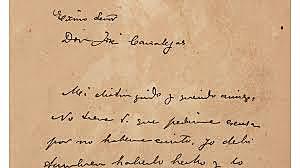 Exmo Señor
Don José Canalejas
Mi distinguido y querido amigo:
No tiene V. que pedirme excusa
por no haberme escrito, yo debí
también haberlo hecho y lo